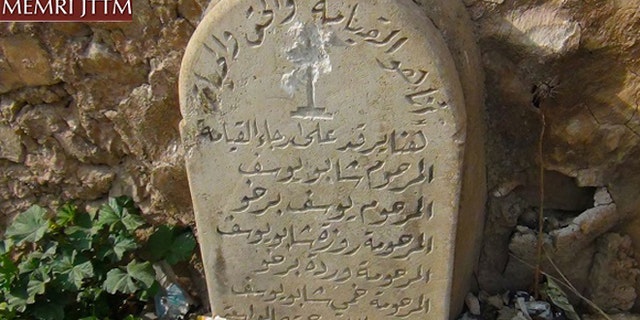 MEMRI JTTM
انا هو القيامة والحق والحياة
هنا يرقد على رجاء القيامة
المرحوم شابو يوسف
المرحوم يوسف برخو
المرحومة روزة شابو يوسف
المرحومة وردة برخو
المرحومة خمي شابو يوسف